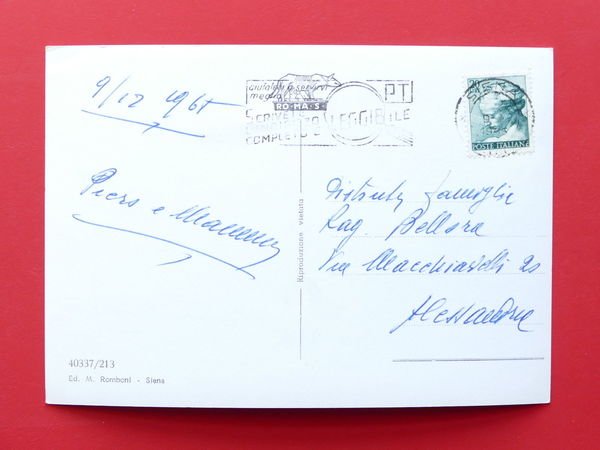 9/12 1961
aiutateci a servirvi
meglio
PT
RO-MA-S
SCRIVETE LEGGIBILE
COMPLETO
20
POSTE ITALIANE
Distinta Famiglia
Rag. Bellora
Via Macchiavelli 20
Alessandria
Piero e
Riproduzione vietata
40337/213
Ed. M. Romboni - Siena